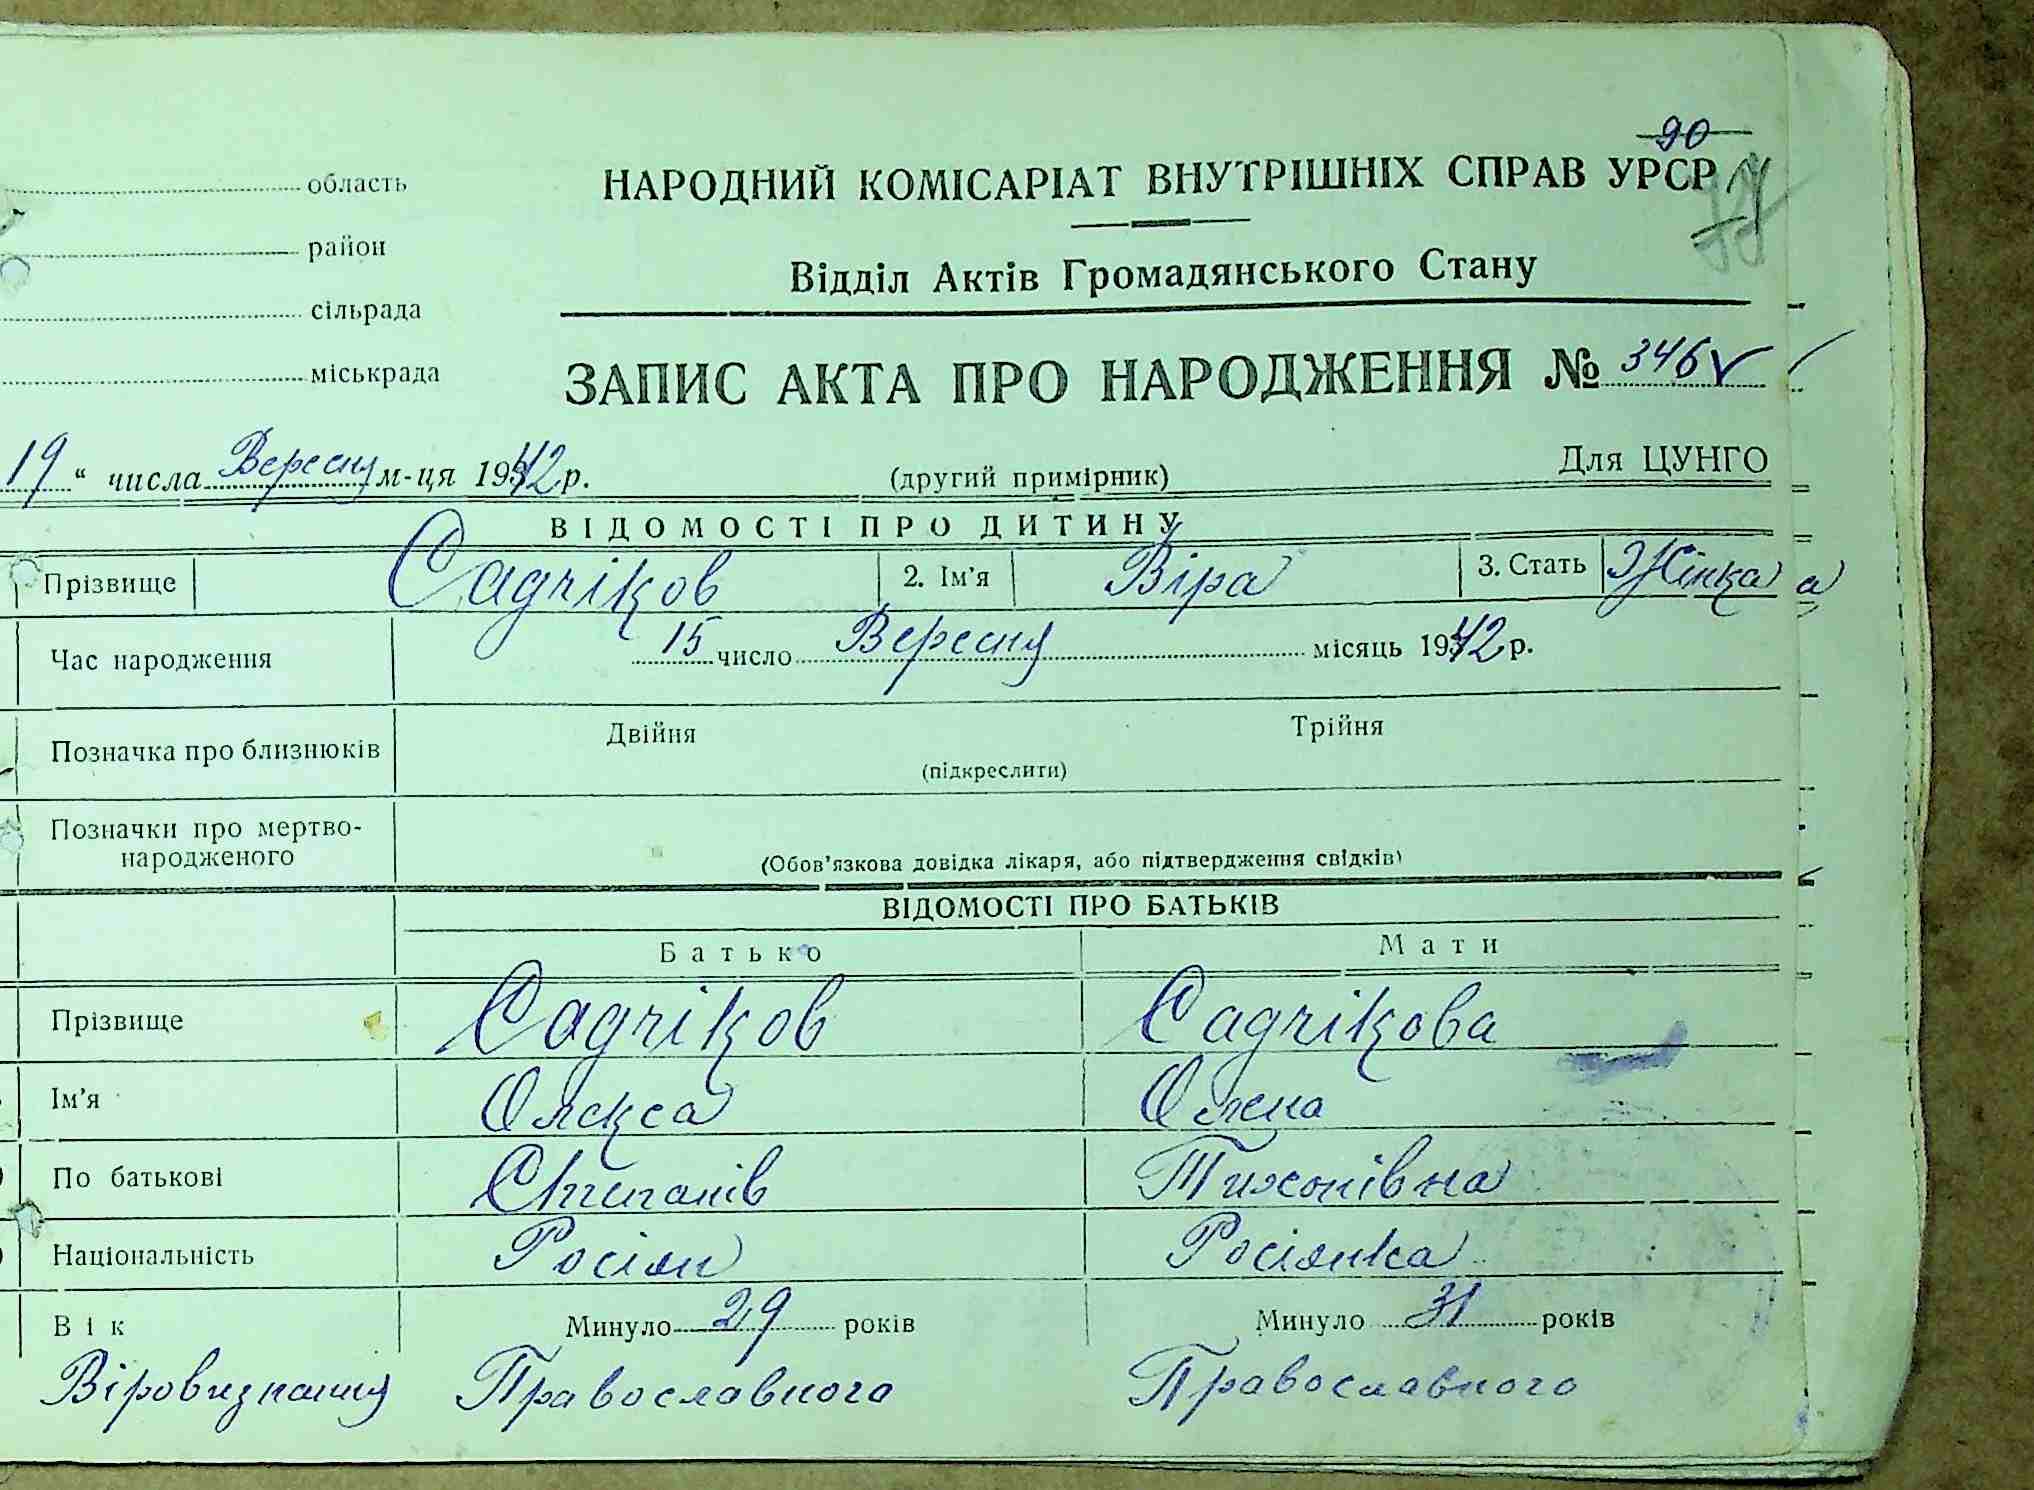 90
77
область
НАРОДНИЙ КОМІСАРІАТ ВНУТРІШНІХ СПРАВ УРСР
район
Відділ Актів Громадянського Стану
сільрада
міськрада
ЗАПИС АКТА ПРО НАРОДЖЕННЯ № 346
19 " числа Вересня м-ця 1942 р.
(другий примірник)
Для ЦУНГО
ВІДОМОСТІ ПРО ДИТИНУ
Прізвище Садчіков 2. Ім'я Віра 3. Стать Жінка
Час народження 15 число Вересня місяць 1942 р.
Позначка про близнюків Двійня Трійня
(підкреслити)
Позначки про мертво-
народженого
(Обов'язкова довідка лікаря, або підтвердження свідків)
ВІДОМОСТІ ПРО БАТЬКІВ
Батько Мати
Прізвище Садчіков Садчікова
Ім'я Олекса Олена
По батькові Степанів Тихонівна
Національність Росіян Росіянка
Вік Минуло 29 років Минуло 31 років
Віровизнання Православного Православного